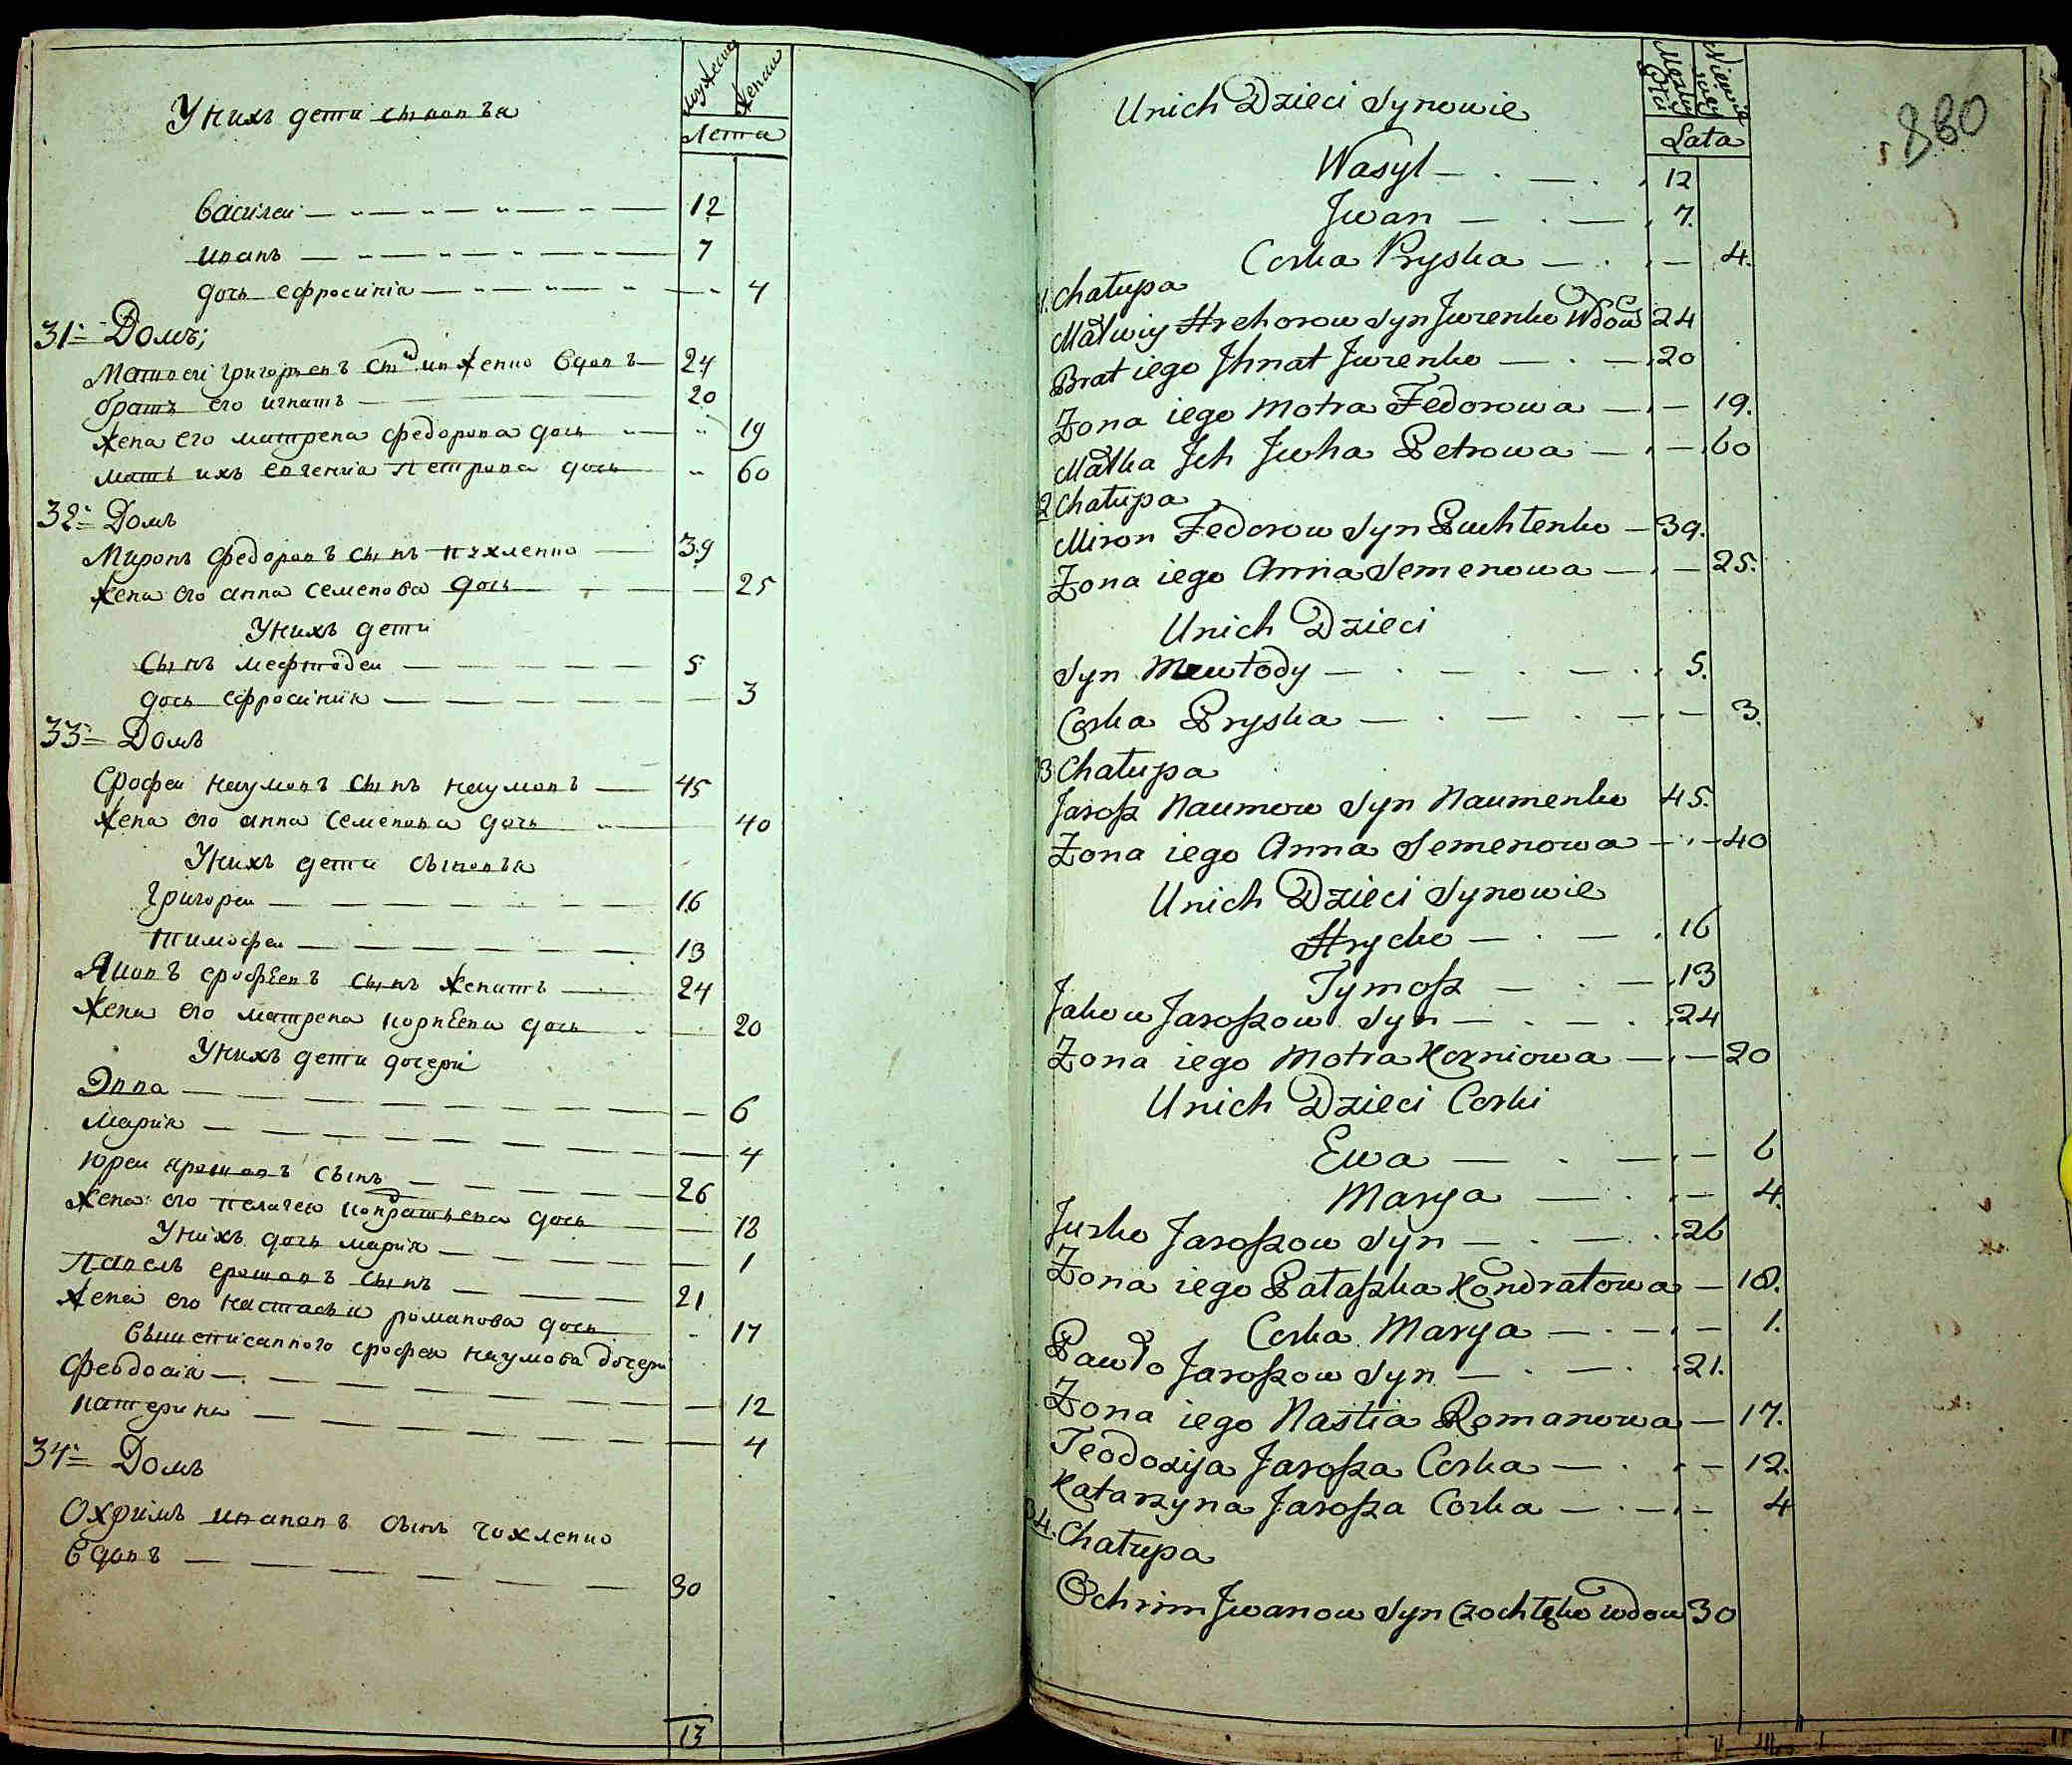 Мужеска
Женска
Лета
У нихъ дети сыновья
Василеи 12
Иванъ 7
дочь Ефросиния 4
31 Домъ;
Матвеи Григорьевъ сынъ Вдовъ 24
братъ его Игнатъ 20
жена его Матрена Федорова дочь 19
мать ихъ Евгения Петрова дочь 60
32 Домъ
Миронъ Федоровъ сынъ Пухленко 39
жена его Анна Семенова дочь 25
У нихъ дети
сынъ Мефтодеи 5
дочь Ефросиния 3
33 Домъ
Ерофеи Наумовъ сынъ Наумовъ 45
жена его Анна Семенова дочь 40
У нихъ дети сыновья
Григореи 16
Тимофеи 13
Яковъ Ерофеевъ сынъ женатъ 24
жена его Матрена Корнеева дочь 20
У нихъ дети дочери
Эвва 6
Мария 4
Юреи Ярошовъ сынъ 26
жена его Пелагея Кондратьева дочь 18
У нихъ дочь Мария 1
Павелъ Ерошовъ сынъ 21
жена его Настасья Романова дочь 17
Вышеписанного Ерофея Наумова дочери
Феодосия 12
Катерина 4
34 Домъ
Охримъ Ивановъ сынъ Чохленко
Вдовъ 30
13
880
Lata
Unich Dzieci Synowie
Wasyl 12
Jwan 7.
Corka Pryska 4.
1. Chałupa
Matwiy Hrehorow Syn Jwzenko Wdow 24
Brat iego Jhnat Jwzenko 20
Zona iego Motra Fedorowa 19.
Matka Jch Jwha Petrowa 60
2 Chałupa
Miron Fedorow Syn Puchtenko 39.
Zona iego Anna Semenowa 25.
Unich Dzieci
Syn Mewtody 5.
Corka Pryska 3.
3 Chałupa
Jarosz Naumow Syn Naumenko 45.
Zona iego Anna Semenowa 40
Unich Dzieci Synowie
Hrycko 16
Tymosz 13
Jakow Jaroszow Syn 24
Zona iego Motra Korniowa 20
Unich Dzieci Corki
Ewa 6
Marya 4.
Jurko Jaroszow Syn 26
Zona iego Pałaszka Kondratowa 18.
Corka Marya 1.
Pawło Jaroszow Syn 21.
Zona iego Nastia Romanowa 17.
Teodozija Jarosza Corka 12.
Katarzyna Jarosza Corka 4
34. Chałupa
Ochrim Jwanow Syn Czochłęko wdow 30